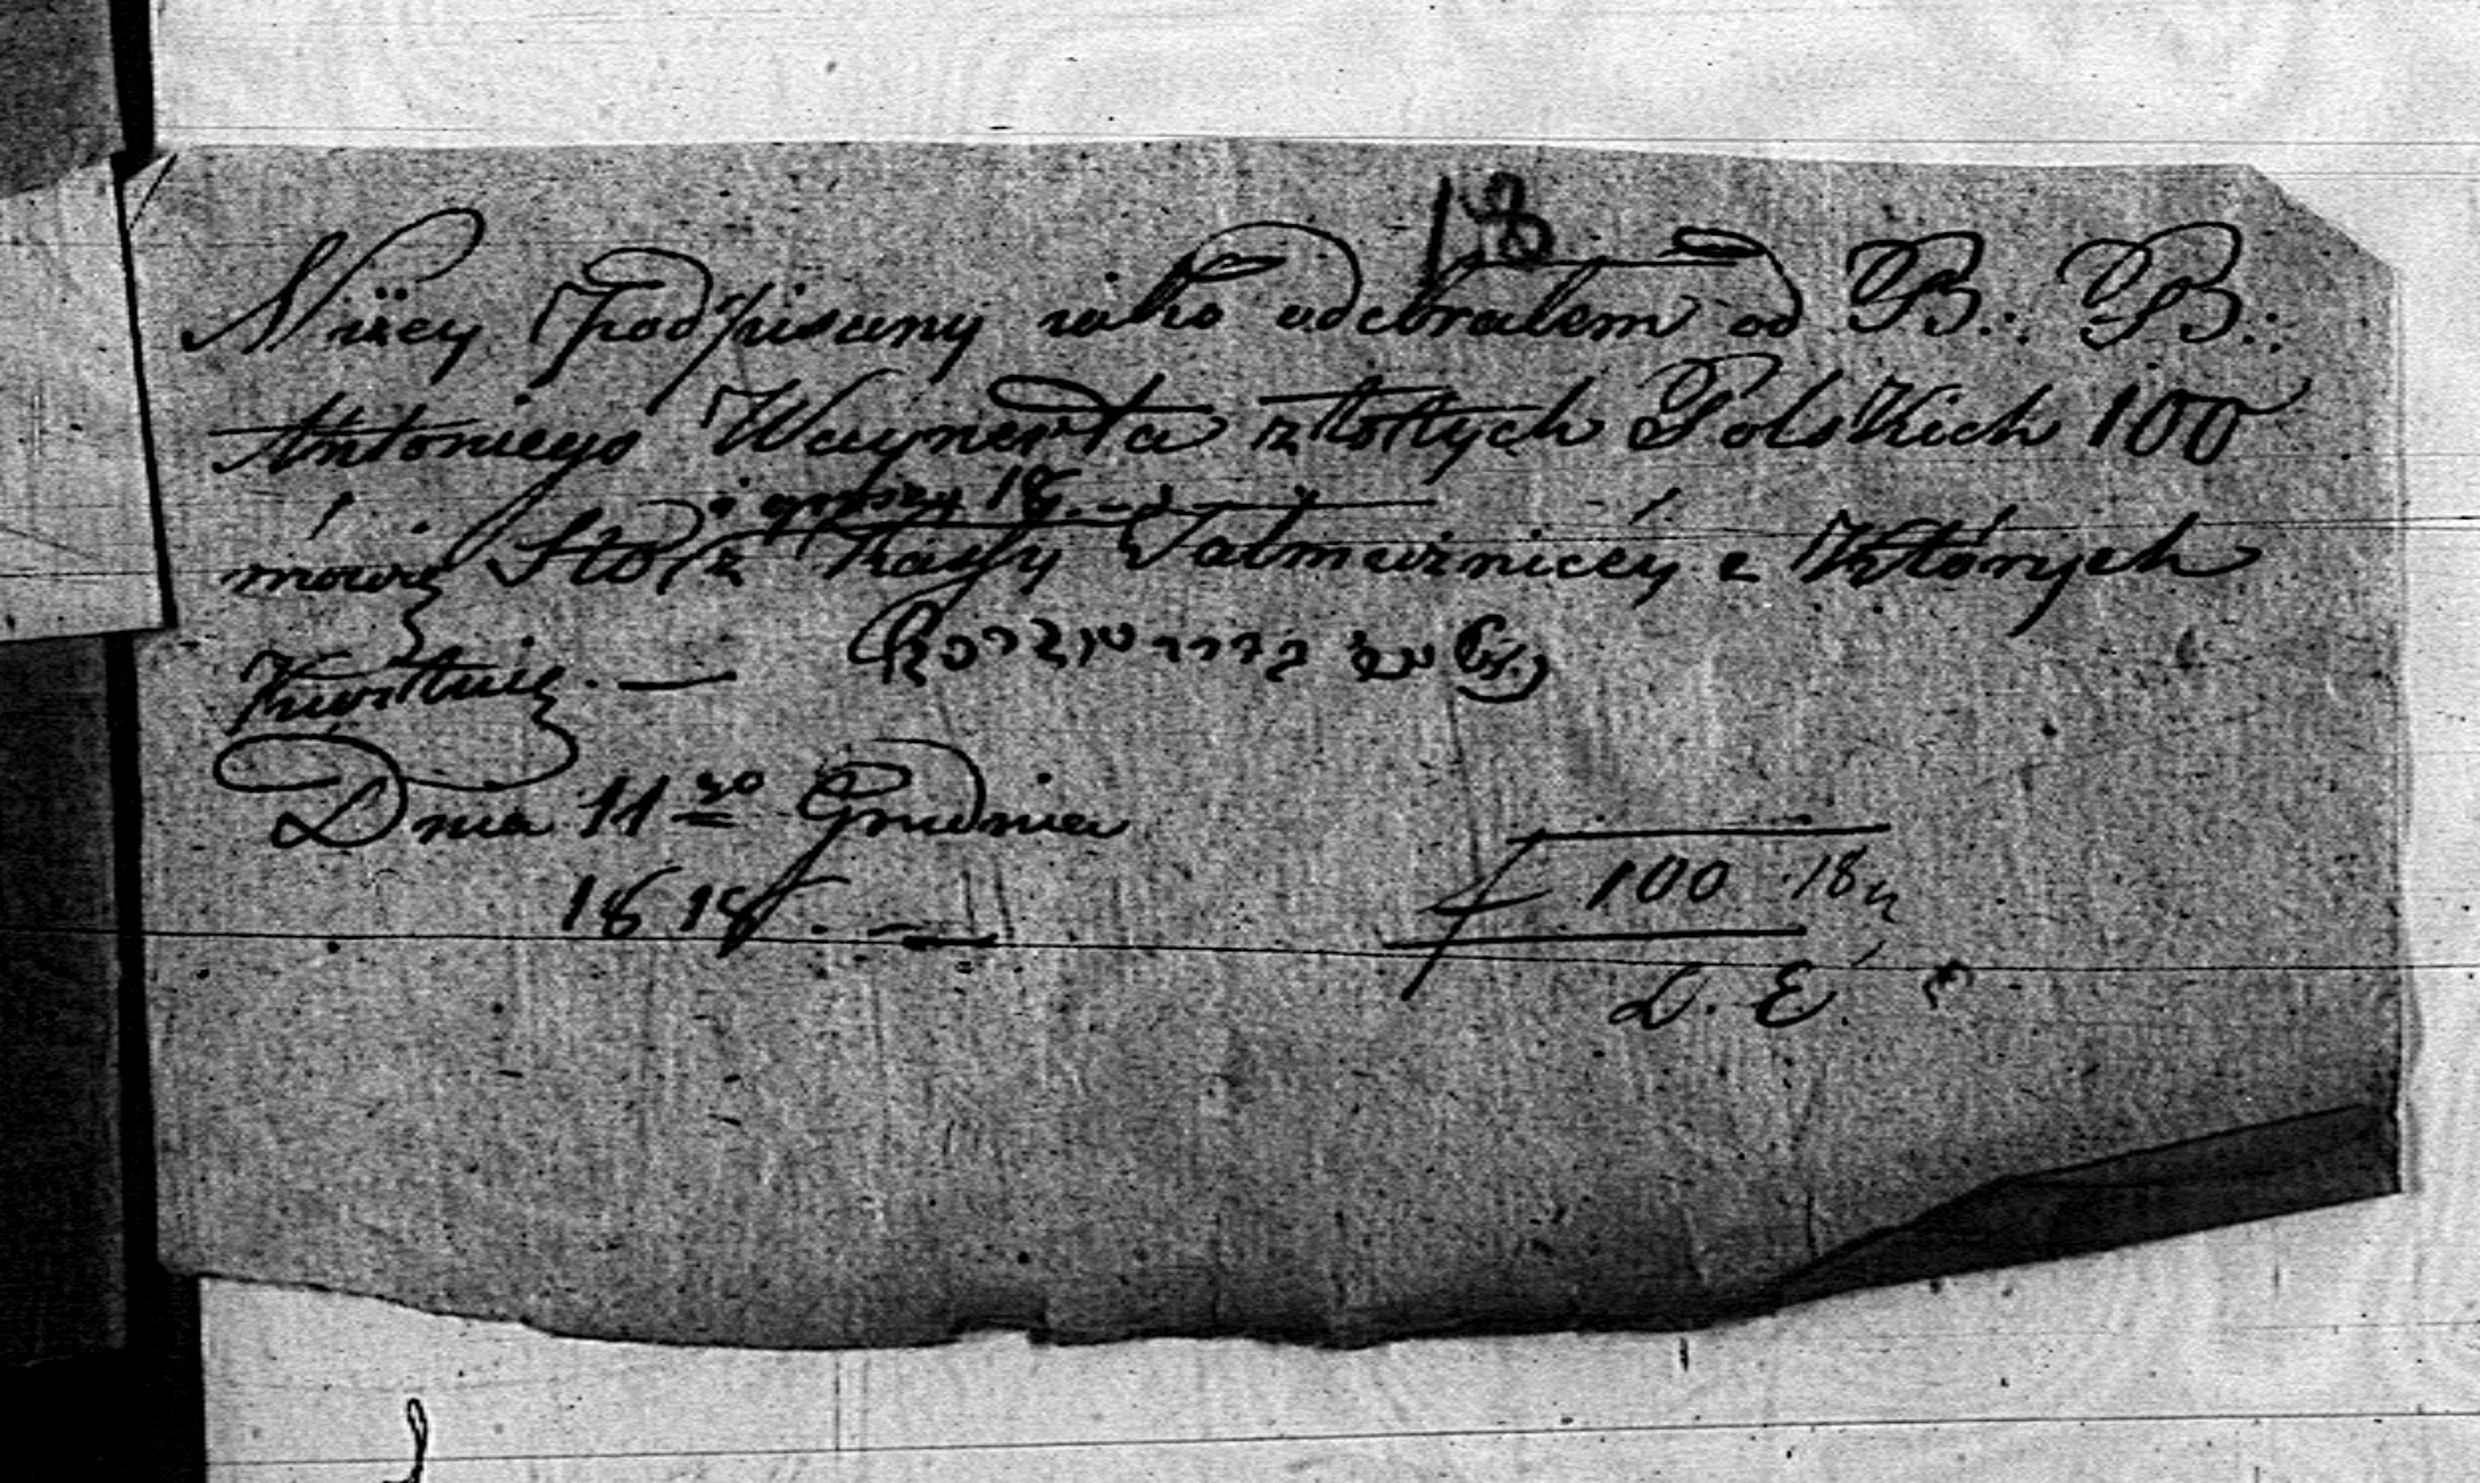 18
Niżey podpisany iako odebrałem od B∴ B∴
Antoniego Waynerta złottych Polskich 100
i groszy 18.
mówię Sto/z Kassy Jałmużniczéy z Których
Kwituię. —
Dnia 11go Grudnia
1818. —
f 100 18
D. E.